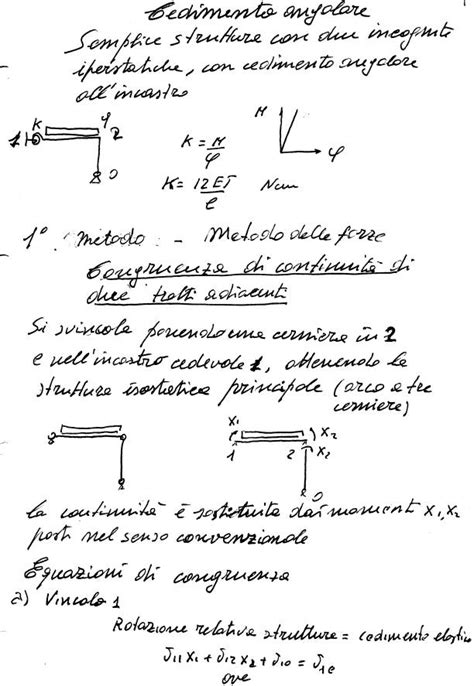 Cedimento angolare
Semplice struttura con due incognite
iperstatiche, con cedimento angolare
all'incastro
K φ M
1 2 K = M/φ
0 φ
K = 12EI/l Nm
1° Metodo: - Metodo delle forze
Congruenza di continuità di
due tratti adiacenti
Si svincola ponendo una cerniera in 2
e nell'incastro cedevole 1, ottenendo la
struttura isostatica principale (arco a tre
cerniere)
X1 X2
1 2 X2
0
La continuità è sostituita dai momenti X1, X2
posti nel senso convenzionale
Equazioni di congruenza
a) Vincolo 1
Rotazione relativa struttura = cedimento elastico
δ11 X1 + δ12 X2 + δ10 = δ1e
ove